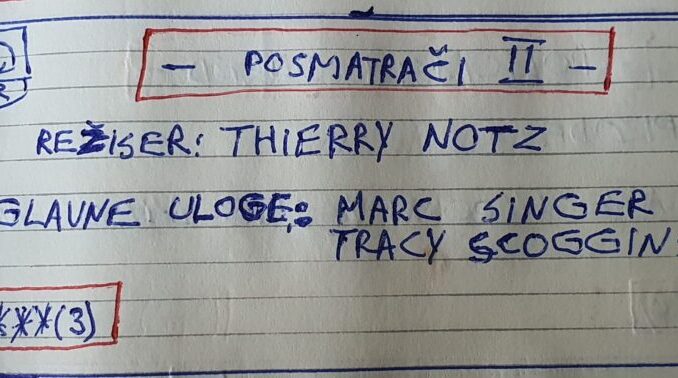 - POSMATRAČI II -
REŽISER: THIERRY NOTZ
GLAVNE ULOGE: MARC SINGER
TRACY SCOGGIN
***(3)